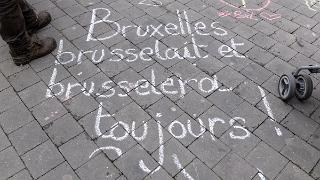 Bruxelles
brusselait et
brusselera
toujours !